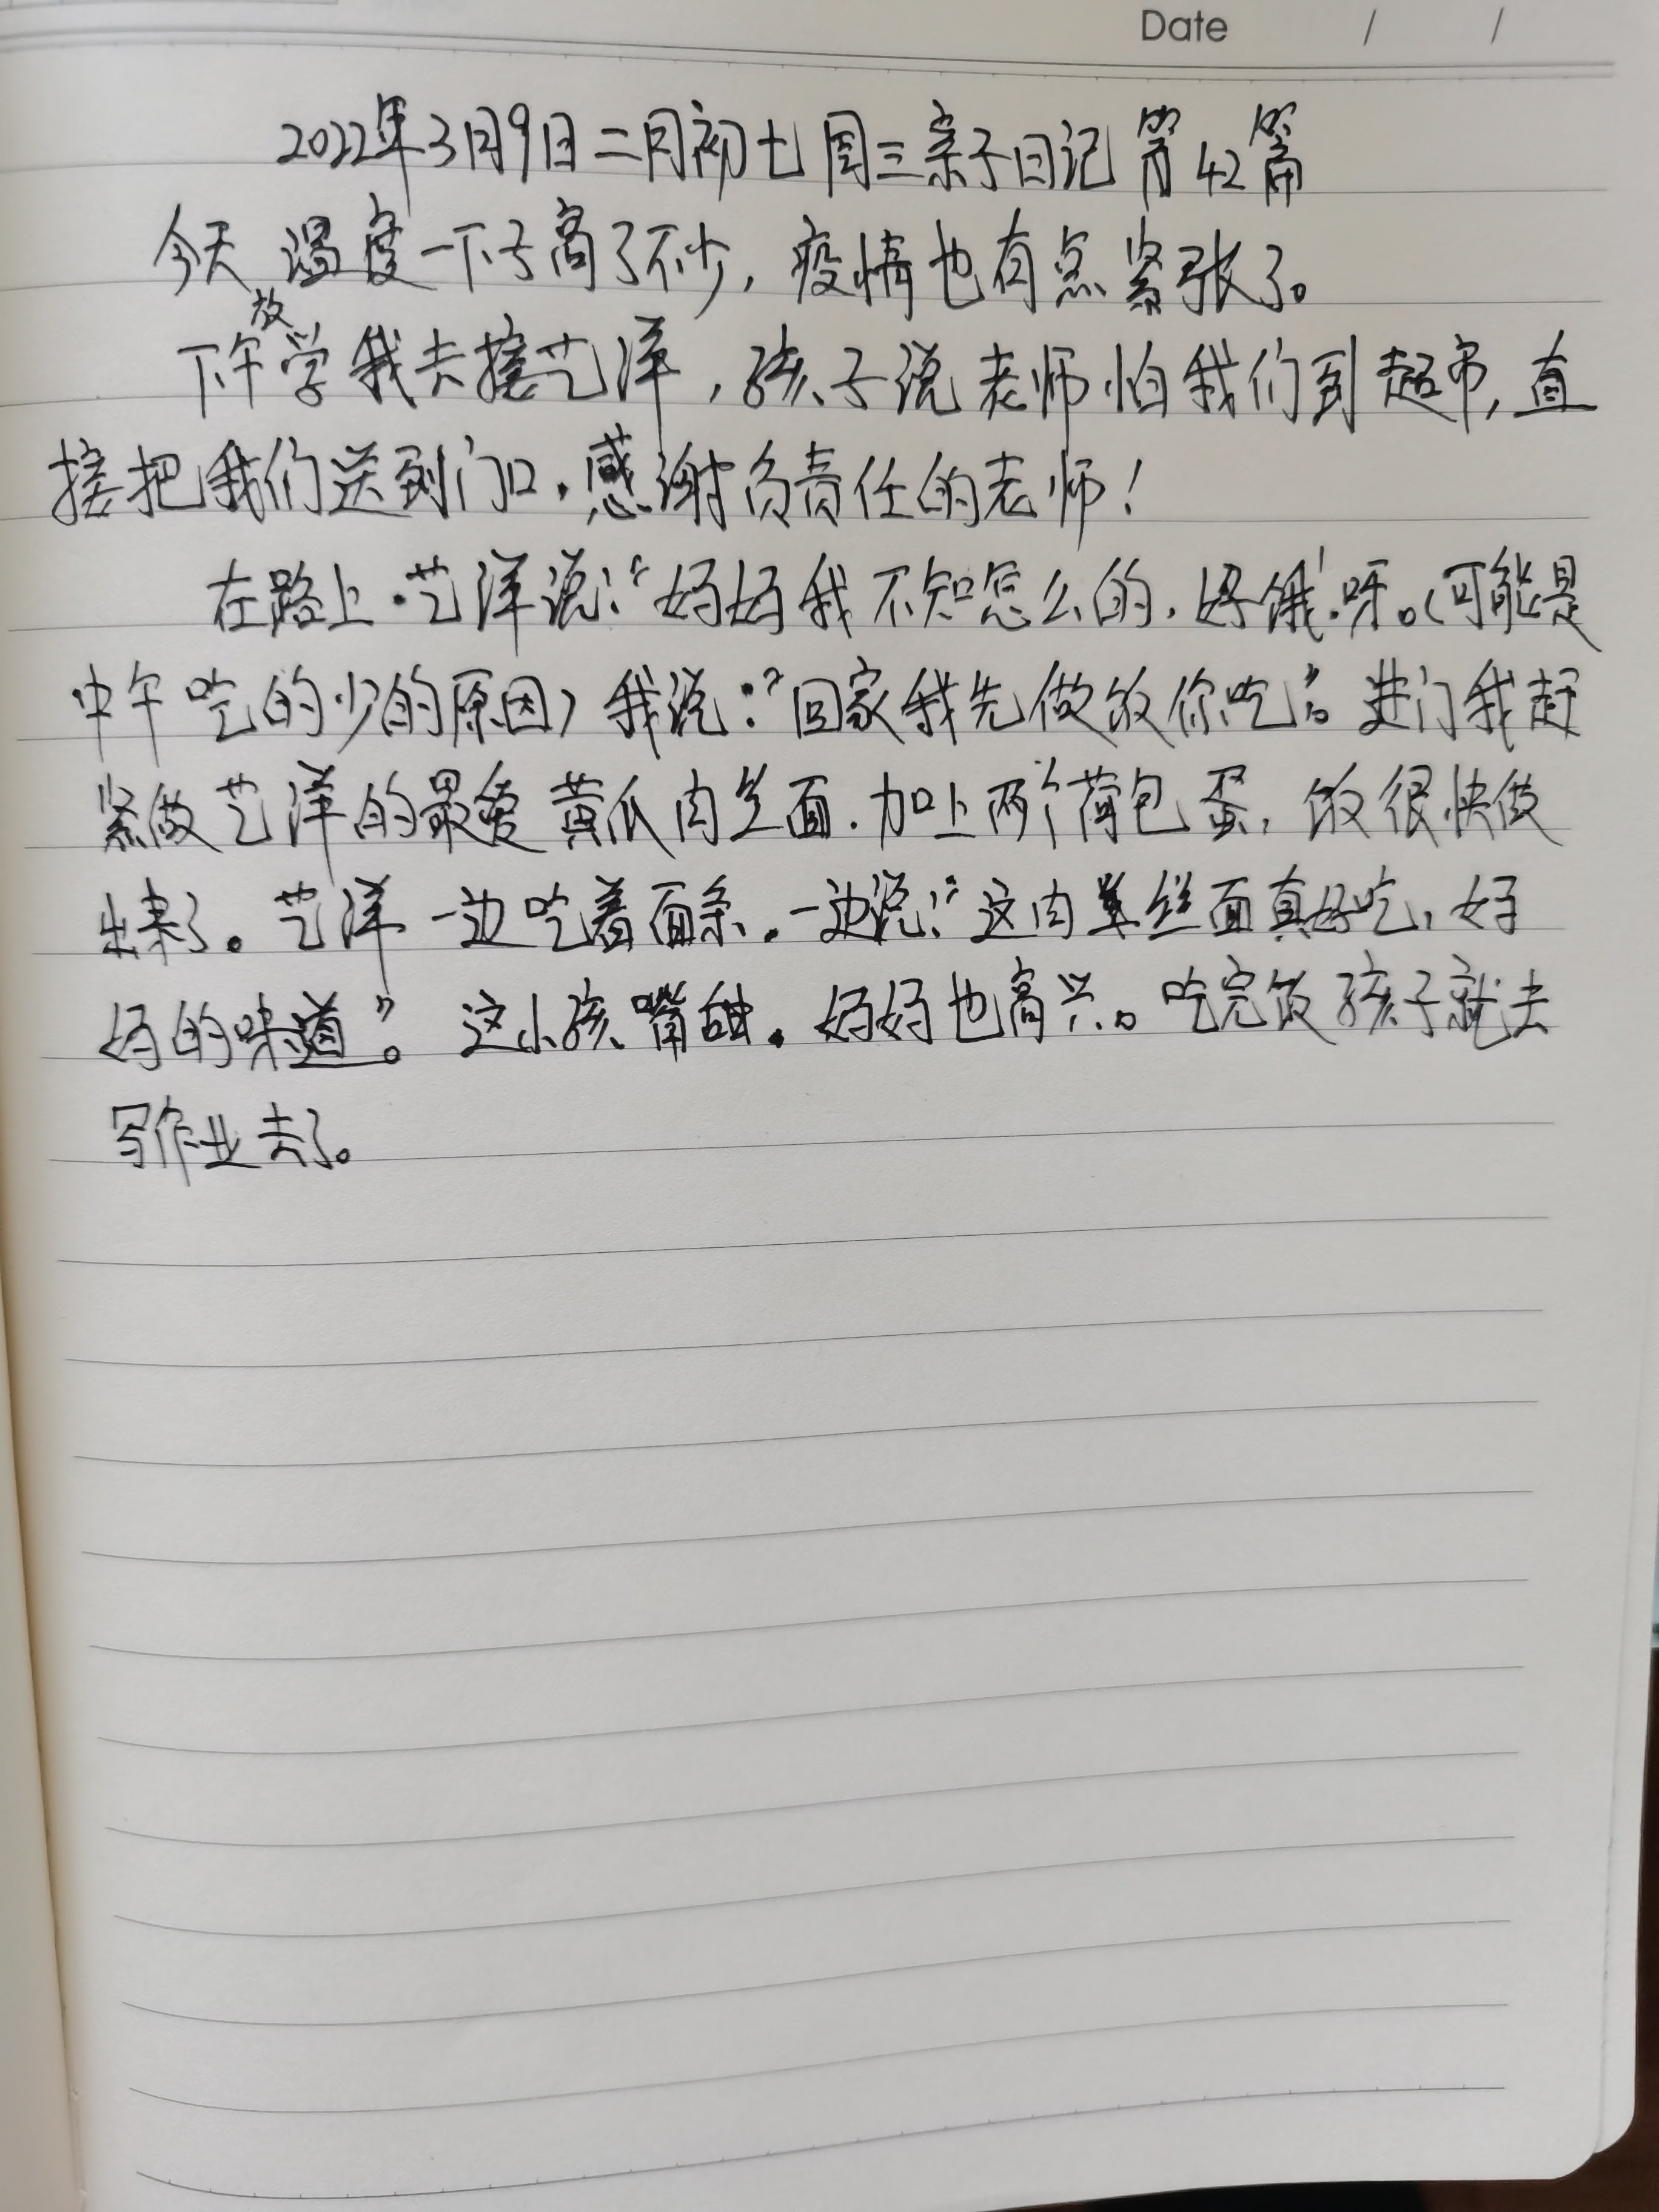 Date / /
2022年3月9日二月初七周三亲子日记第42篇
今天温度一下子高了不少,疫情也有点紧张了。
下午放学我去接艺洋,孩子说老师怕我们到超市,直
接把我们送到门口.感谢负责任的老师!
在路上.艺洋说:“妈妈我不知怎么的,好饿呀。(可能是
中午吃的少的原因)我说:“回家我先做饭你吃”。进门我赶
紧做艺洋的最爱黄瓜肉丝面.加上两个荷包蛋,饭很快做
出来了。艺洋一边吃着面条.一边说:“这肉丝面真好吃,妈
妈的味道”。这小孩嘴甜.妈妈也高兴。吃完饭孩子就去
写作业去了。